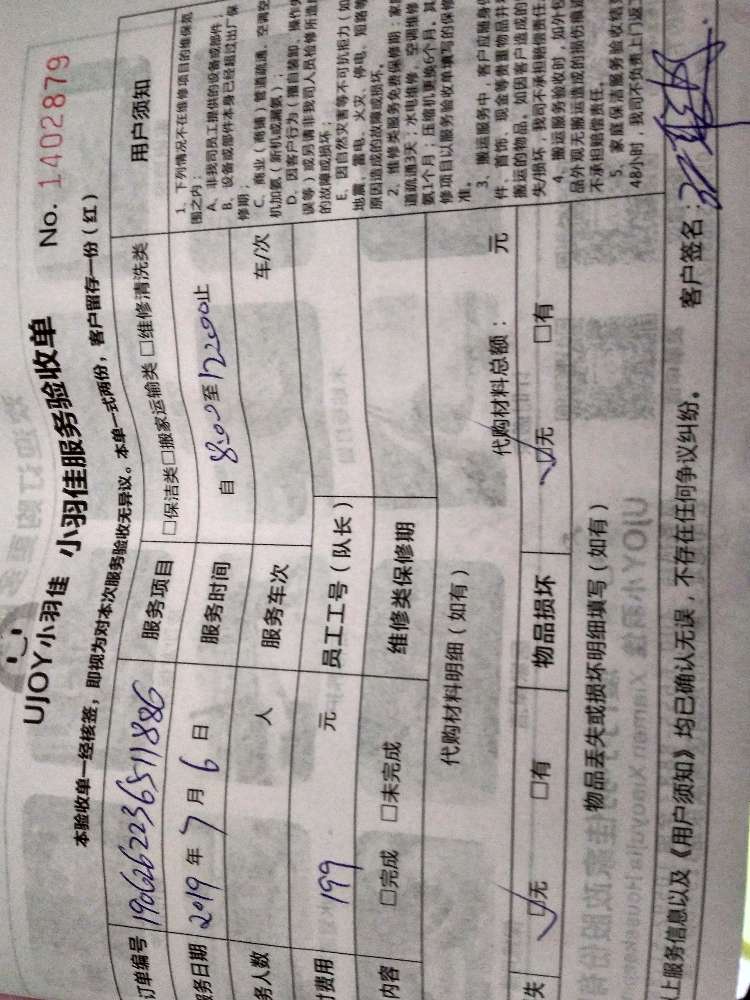 UJOY小羽佳 小羽佳服务验收单 No. 1402879
本验收单一经核签，即视为对本次服务验收无异议。本单一式两份，客户留存一份（红）
订单编号 1906262236511886 服务项目 □保洁类□搬家运输类 □维修清洗类
服务日期 2019 年 7 月 6 日 服务时间 自 8:00 至 12:00 止
务人数 人 服务车次 车/次
付费用 199 元 员工工号（队长）
内容 □完成 □未完成 维修类保修期
代购材料明细（如有） 代购材料总额： 元
失 ☑无 □有 物品损坏 ☑无 □有
物品丢失或损坏明细填写（如有）
上服务信息以及《用户须知》均已确认无误，不存在任何争议纠纷。 客户签名：
用户须知
1、下列情况不在维修项目的维保范
围之内：
A、非我司员工提供的设备或部件；
B、设备或部件本身已经超过出厂保
修期；
C、商业（商铺）管道疏通、空调空
机加氨（新机或漏氨）；
D、因客户行为（擅自装卸、操作失
误等）或另请非我司人员检修所造
的故障或损坏；
E、因自然灾害等不可抗拒力（如
地震、雷电、火灾、停电、短路等
原因造成的故障或损坏。
2、维修类服务免费保修期：家
道疏通3天；水电维修、空调维修
氨1个月；压缩机更换6个月，其
修项目以服务验收单填写的保修
准。
3、搬运服务中，客户应随身
件、首饰、现金等贵重物品并
搬运的物品。如因客户造成的
失/损坏，我司不承担赔偿责任。
4、搬运服务验收时，如外包
品外观无搬运造成的损伤痕迹
不承担赔偿责任。
5、家庭保洁服务验收后
48小时，我司不负责上门返